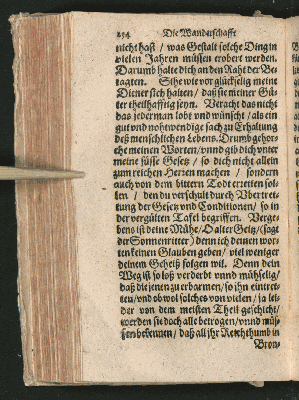 254 Die Wanderschafft
nicht hast / was Gestalt solche Ding in
vielen Jahren müssen erobert werden.
Darumb halte dich an den Raht der Be-
tagten. Sihe wie vor glückselig meine
Diener sich halten / daß sie meiner Gü-
ter theilhafftig seyn. Veracht das nicht
das jederman lobt vnd wünscht / als ein
gut vnd nohtwendige sach zu Erhaltung
deß menschlichen Lebens. Drumb gehor-
che meinen Worten / vnnd gib dich vnter
meine süsse Gesetz / so dich nicht allein
zum reichen Herren machen / sondern
auch von dem bittern Todt erretten sol-
len / den du verschult durch Vbertret-
tung der Gesetz vnd Conditionen / so in
der vergülten Tafel begriffen. Verge-
bens ist deine Mühe / O alter Geltz / (sagt
der Sonnenritter) denn ich deinen wor-
ten keinen Glauben geben / viel weniger
deinen Geheiß folgen wil. Denn dein
Weg ist so loß verderbt vnnd mühselig /
daß die jenen zu erbarmen / so ihn eintret-
ten / vnd ob wol solches von vielen / ja lei-
der von dem meisten Theil geschicht /
werden sie doch alle betrogen / vnnd müs-
sen bekennen / daß all jhr Reichthumb in
Bron-